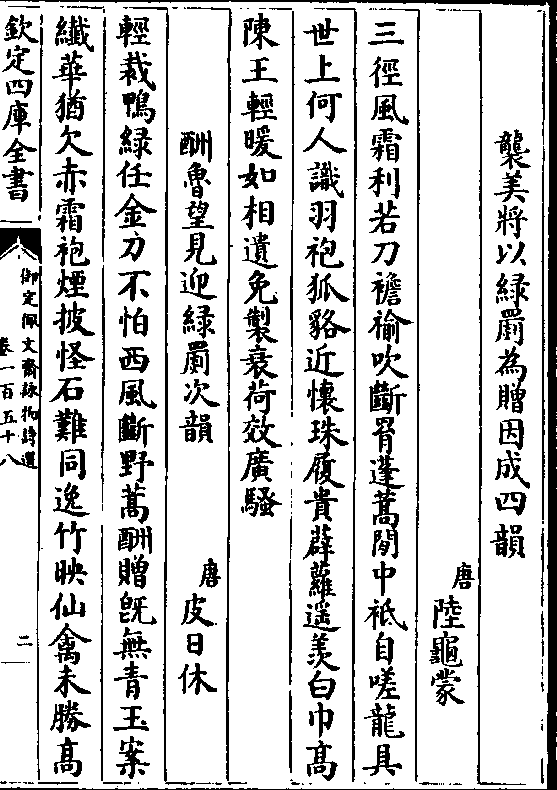 襲美將以綠罽為贈因成四韻
唐
陸龜蒙
三徑風霜利若刀襜褕吹斷罥蓬蒿閒中秪自嗟龍具
世上何人識羽袍狐貉近懷珠履貴薜蘿遥羡白巾髙
陳王輕暖如相遺免製衰荷效廣騷
酬魯望見迎綠罽次韻
唐
皮日休
輕裁鴨綠任金刀不怕西風斷野蒿酬贈旣無青玉案
纎華猶欠赤霜袍煙披怪石難同逸竹映仙禽未勝髙
欽定四庫全書
御定佩文齋詠物詩選
卷一百五十八
二